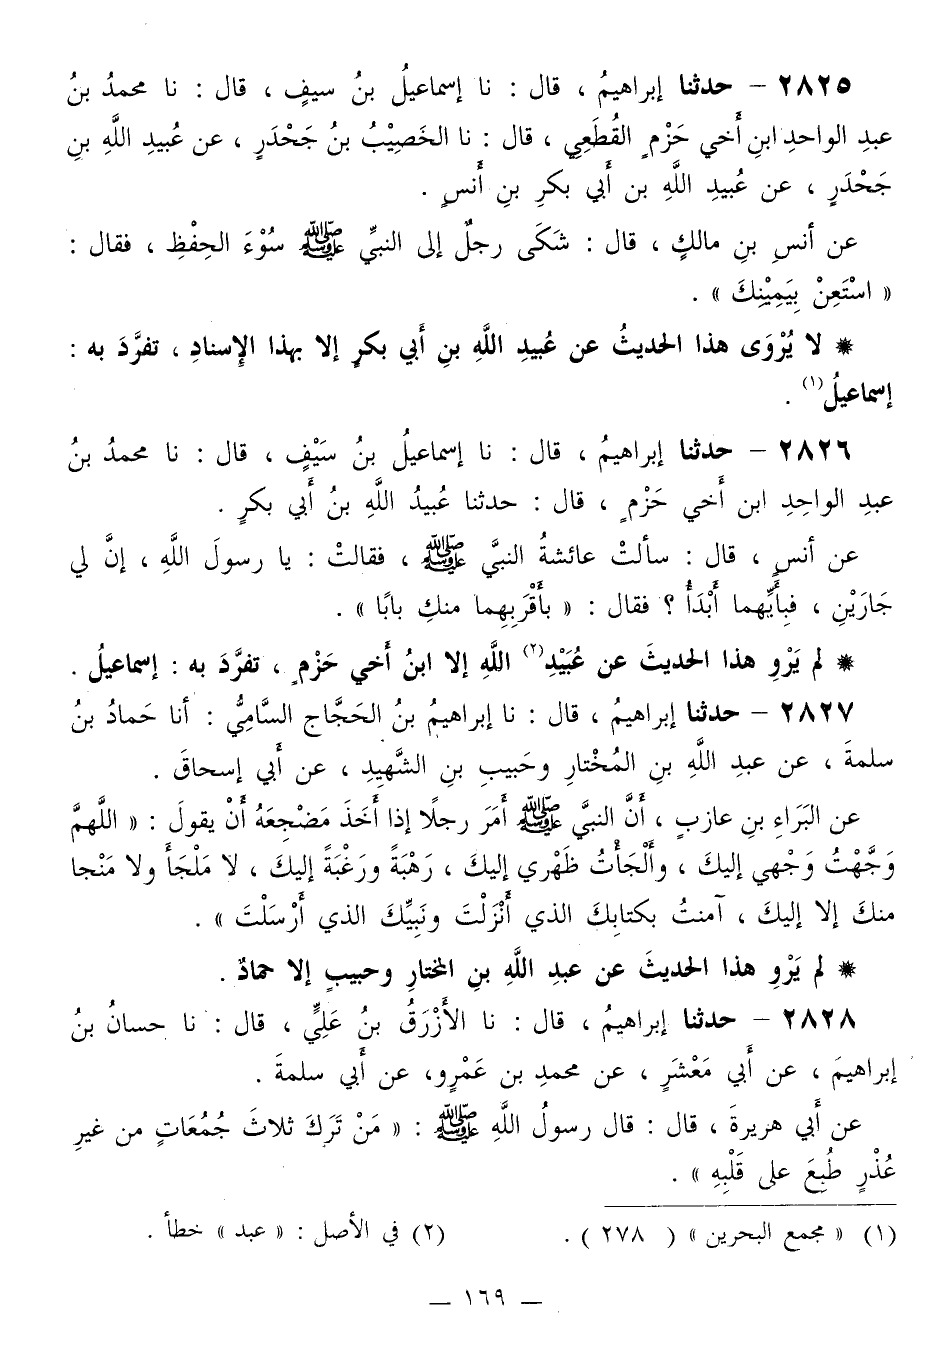 ٢٨٢٥ – حدثنا إبراهيمُ ، قال : نا إسماعيلُ بنُ سيفٍ ، قال : نا محمدُ بنُ
عبدِ الواحدِ ابنِ أَخي حَزْمٍ القُطَعِي ، قال : نا الخَصِيْبُ بنُ جَحْدَرٍ ، عن عُبيدِ اللَّهِ بنِ
جَحْدَرٍ ، عن عُبيدِ اللَّهِ بن أَبي بكرِ بنِ أَنسٍ .
عن أنسِ بنِ مالكٍ ، قال : شَكَى رجلٌ إلى النبيِّ ﷺ سُوْءَ الحِفْظِ ، فقال :
« اسْتَعِنْ بِيَمِيْنِكَ » .
* لا يُرْوَى هذا الحديثُ عن عُبيدِ اللَّهِ بنِ أَبي بكرٍ إلا بهذا الإِسنادِ ، تفرَّدَ به :
إسماعيلُ(١) .
٢٨٢٦ – حدثنا إبراهيمُ ، قال : نا إسماعيلُ بنُ سَيْفٍ ، قال : نا محمدُ بنُ
عبدِ الواحِدِ ابن أَخي حَزْمٍ ، قال : حدثنا عُبيدُ اللَّهِ بنُ أَبي بكرٍ .
عن أنسٍ ، قال : سألتْ عائشةُ النبيَّ ﷺ ، فقالتْ : يا رسولَ اللَّهِ ، إنَّ لي
جَارَيْنِ ، فبأيِّهما أَبْدَأُ ؟ فقال : « بأَقْرَبِهما منكِ بابًا » .
* لم يَرْوِ هذا الحديثَ عن عُبَيْدِ(٢) اللَّهِ إلا ابنُ أَخي حَزْمٍ ، تفرَّدَ به : إسماعيلُ .
٢٨٢٧ – حدثنا إبراهيمُ ، قال : نا إبراهيمُ بنُ الحَجَّاج السَّامِيُّ : أنا حَمادُ بنُ
سلمةَ ، عن عبدِ اللَّهِ بنِ المُخْتارِ وحَبيبِ بنِ الشَّهِيدِ ، عن أَبي إسحاقَ .
عن البَرَاءِ بنِ عازبٍ ، أَنَّ النبيَّ ﷺ أَمَرَ رجلًا إذا أَخَذَ مَضْجِعَهُ أَنْ يقولَ : « اللَّهمَّ
وَجَّهْتُ وَجْهي إليكَ ، وأَلْجَأْتُ ظَهْري إليكَ ، رَهْبَةً ورَغْبَةً إليكَ ، لا مَلْجَأَ ولا مَنْجا
منكَ إلا إليكَ ، آمنتُ بكتابِكَ الذي أَنْزَلْتَ ونَبِيِّكَ الذي أَرْسَلْتَ » .
* لم يَرْوِ هذا الحديثَ عن عبدِ اللَّهِ بنِ المختارِ وحبيبٍ إلا حمادٌ .
٢٨٢٨ – حدثنا إبراهيمُ ، قال : نا الأَزْرَقُ بنُ عَلِيٍّ ، قال : نا حسانُ بنُ
إبراهيمَ ، عن أَبي مَعْشَرٍ ، عن محمدِ بن عَمْرٍو، عن أَبي سلمةَ .
عن أَبي هريرةَ ، قال : قال رسولُ اللَّهِ ﷺ : « مَنْ تَرَكَ ثلاثَ جُمُعَاتٍ من غيرِ
عُذْرٍ طُبِعَ على قَلْبِهِ » .
(١) « مجمع البحرين » ( ٢٧٨ ) . (٢) في الأصل : « عبد » خطأ .
– ١٦٩ –